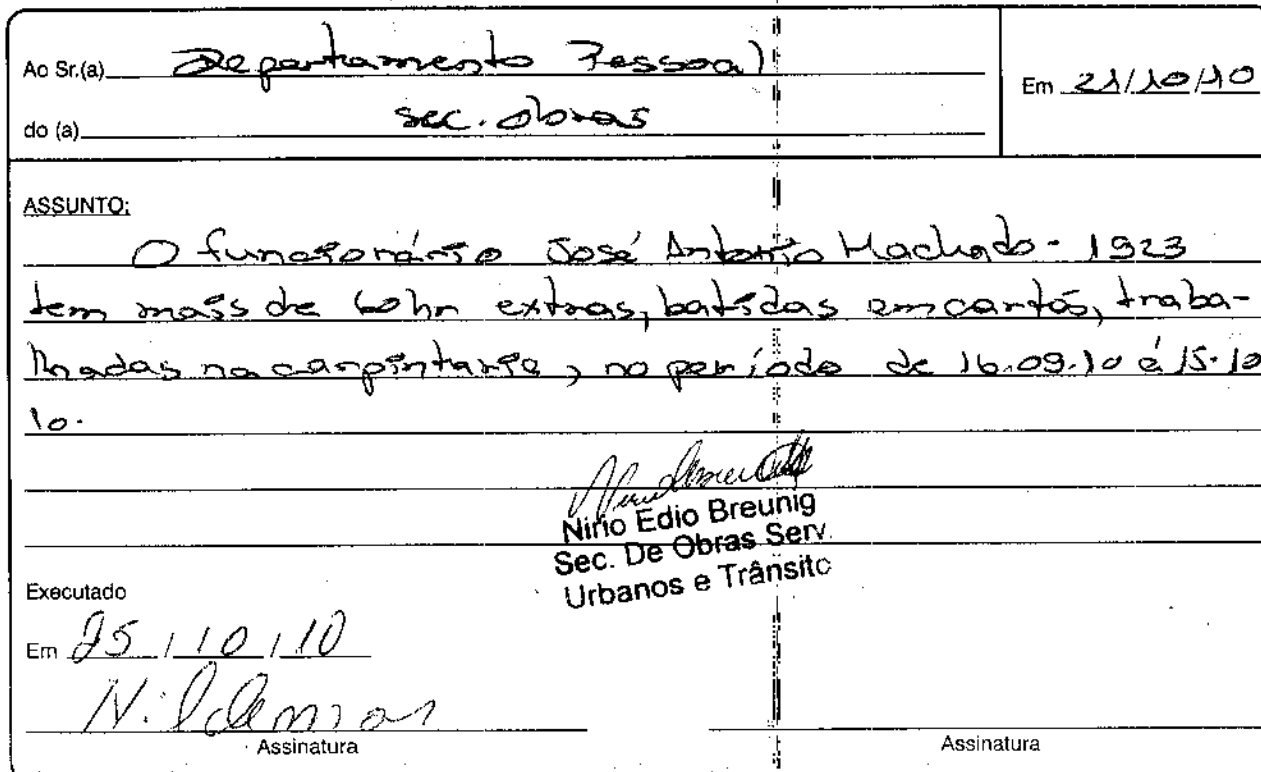 Ao Sr.(a) Departamento Pessoal
Em 21/10/10
do (a) Sec. obras
ASSUNTO:
O funcionário José Antonio Machado - 1923
tem mais de 60 hr extras, batidas em cartão, traba-
lhadas na carpintaria, no período de 16.09.10 á 15.10
10.
Nirio Edio Breunig
Sec. De Obras Serv.
Urbanos e Trânsito
Executado
Em 25/10/10
Assinatura
Assinatura